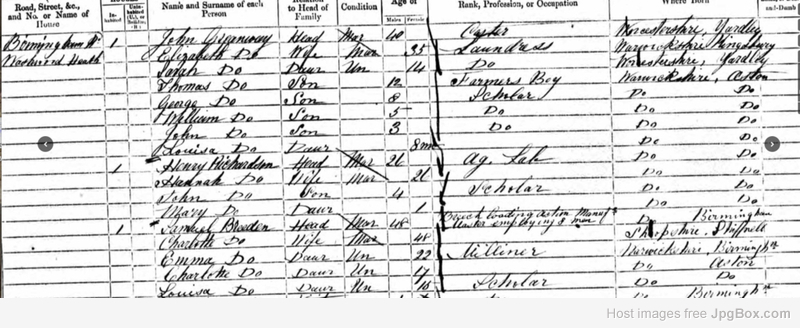 Road, Street, &c., and No. or Name of House In- habited Unin- habited (U.), or Building (B.) Name and Surname of each Person Relation to Head of Family Condition Age of Males Females Rank, Profession, or Occupation Where Born
1 John Greenway Head Mar 40 Carter Worcestershire, Yardley
Birmingham Rd Elizabeth Do Wife Mar 35 Laundress Warwickshire Kingsbury
Washwood Heath Sarah Do Daur Un 14 Do Worcestershire, Yardley
Thomas Do Son 12 Farmers Boy Warwickshire, Aston
George Do Son 8 Scholar Do Do
William Do Son 5 Do Do Do
John Do Son 3 Do Do Do
Louisa Do Daur 8m Do Do
1 Henry Richardson Head Mar 26 Ag. Lab Do Do
Hannah Do Wife Mar 26 Do Do
John Do Son 4 Scholar Do Do
Mary Do Daur 1 Do Birmingham
1 Samuel Breeden Head Mar 48 Breech loading Action Manufr Master employing 8 men Shropshire, Shiffnell
Charlotte Do Wife Mar 48 Warwickshire, Birmingham
Emma Do Daur Un 22 Milliner Do Aston
Charlotte Do Daur Un 17 Do Do
Louisa Do Daur Un 15 Scholar Do Birmingham
Host images free JpgBox.com